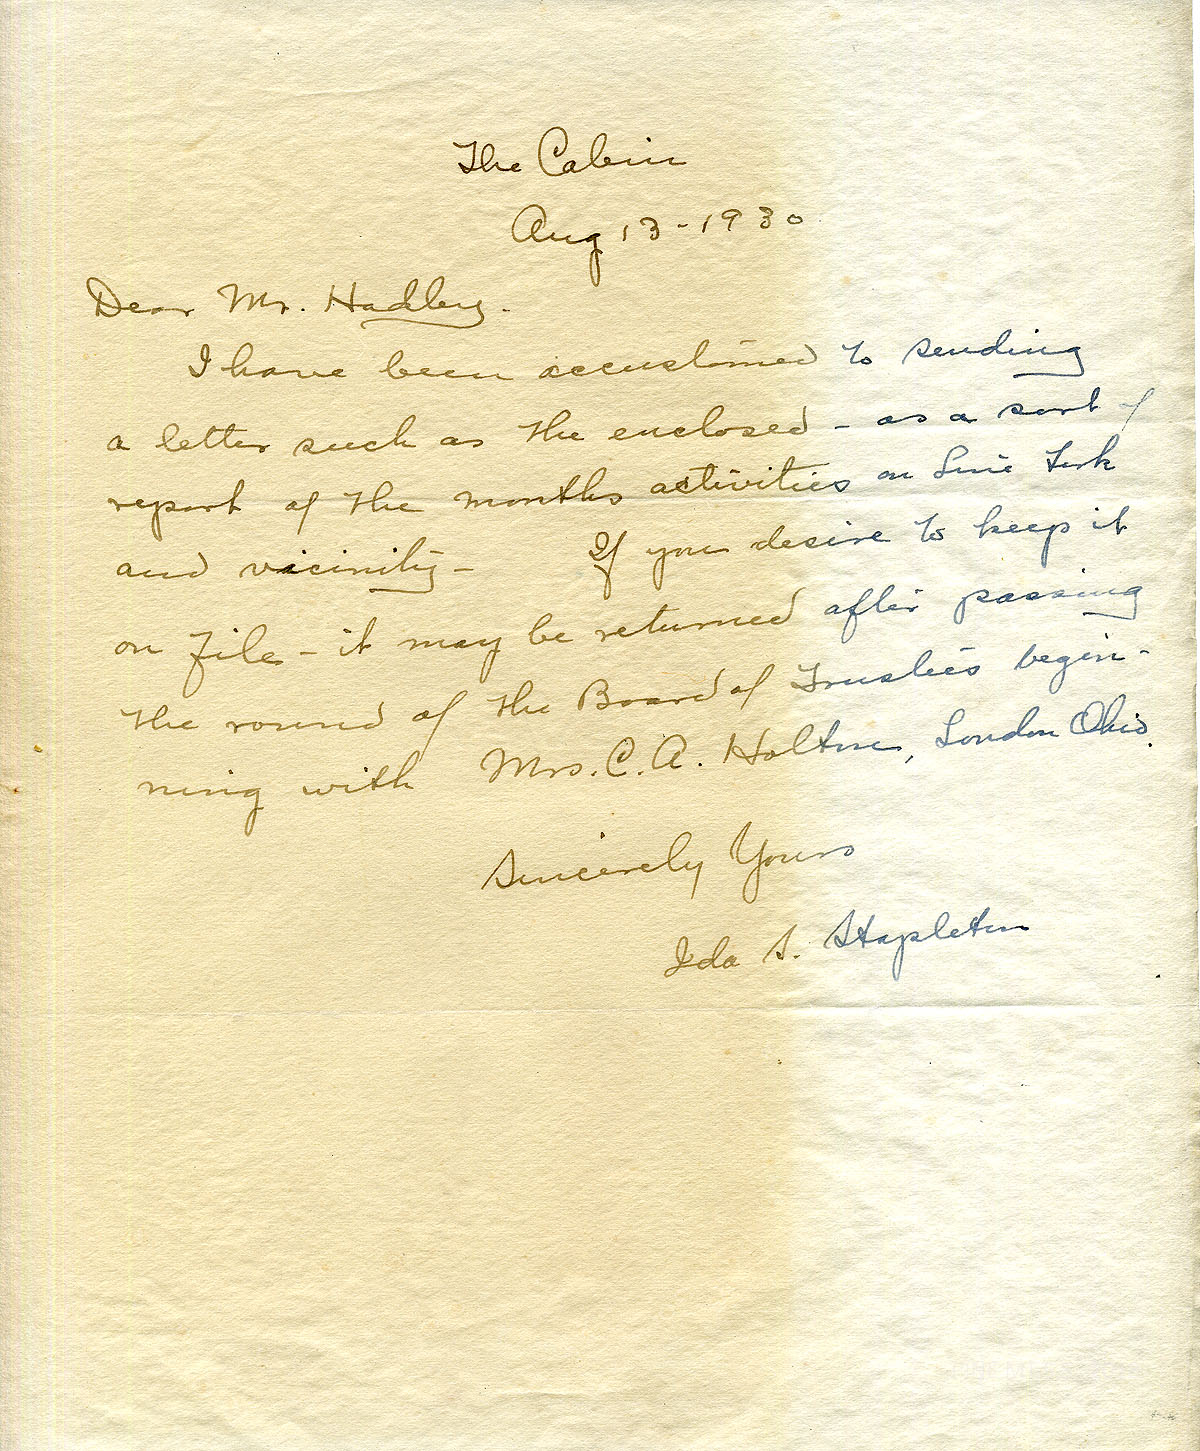 The Cabin
Aug 13-1930
Dear Mr. Hadley.
I have been accustomed to sending
a letter such as the enclosed - as a sort of
report of the months activities on Line Fork
and vicinity - If you desire to keep it
on file - it may be returned after passing
the round of the Board of Trustees begin-
ning with Mrs. C. A. Holton, London Ohio.
Sincerely Yours
Ida S. Stapleton